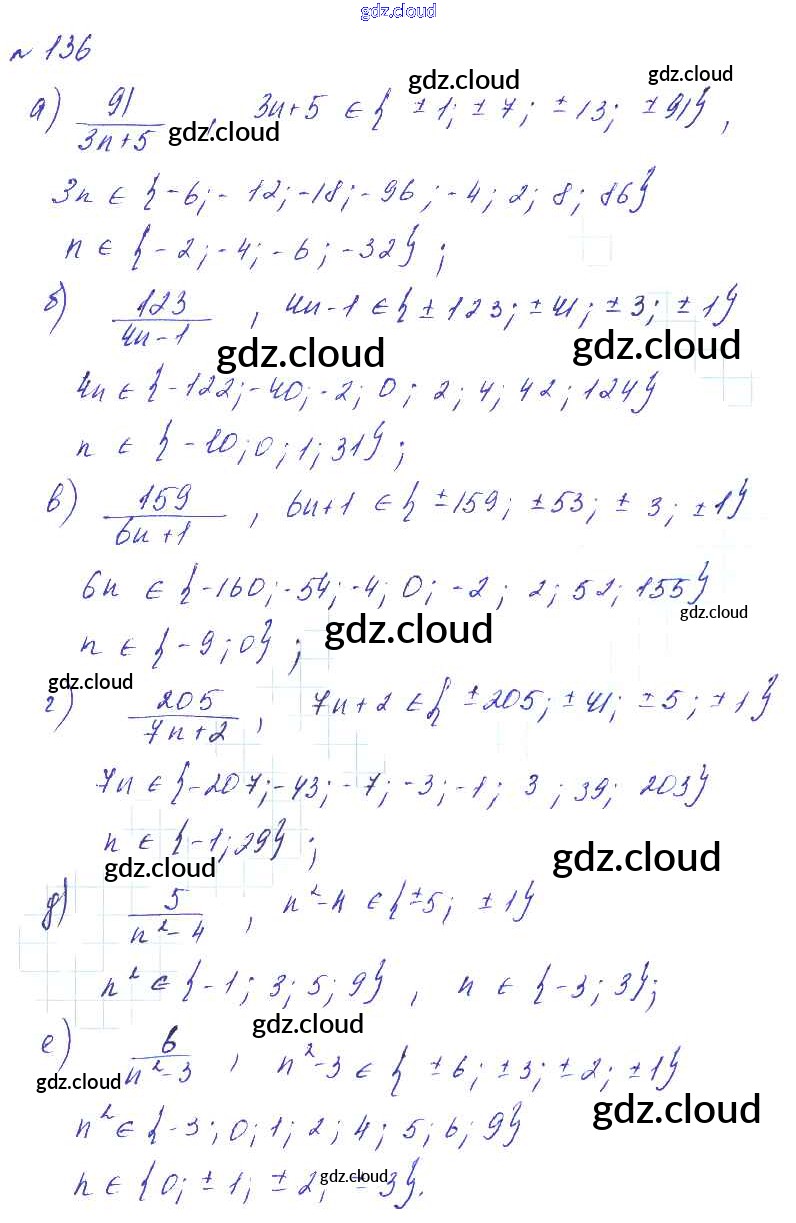 gdz.cloud
№ 136
gdz.cloud gdz.cloud
а) 91/(3n+5) , 3n+5 ∈ { ±1; ±7; ±13; ±91} ,
gdz.cloud
3n ∈ {-6; -12; -18; -96; -4; 2; 8; 86}
n ∈ {-2; -4; -6; -32} ;
б) 123/(4n-1) , 4n-1 ∈ { ±123; ±41; ±3; ±1}
gdz.cloud gdz.cloud
4n ∈ {-122; -40; -2; 0; 2; 4; 42; 124}
n ∈ {-10; 0; 1; 31} ;
в) 159/(6n+1) , 6n+1 ∈ { ±159; ±53; ±3; ±1}
6n ∈ {-160; -54; -4; 0; -2; 2; 52; 155}
gdz.cloud
n ∈ {-9; 0} ;
gdz.cloud
gdz.cloud
г) 205/(7n+2) , 7n+2 ∈ { ±205; ±41; ±5; ±1}
7n ∈ {-207; -43; -7; -3; -1; 3; 39; 203}
n ∈ {-1; 29} ;
gdz.cloud gdz.cloud
д) 5/(n²-4) , n²-4 ∈ {±5; ±1}
n² ∈ {-1; 3; 5; 9} , n ∈ {-3; 3};
gdz.cloud
е) 6/(n²-3) , n²-3 ∈ { ±6; ±3; ±2; ±1}
gdz.cloud
gdz.cloud
n² ∈ {-3; 0; 1; 2; 4; 5; 6; 9}
n ∈ {0; ±1; ±2; ±3}.
gdz.cloud